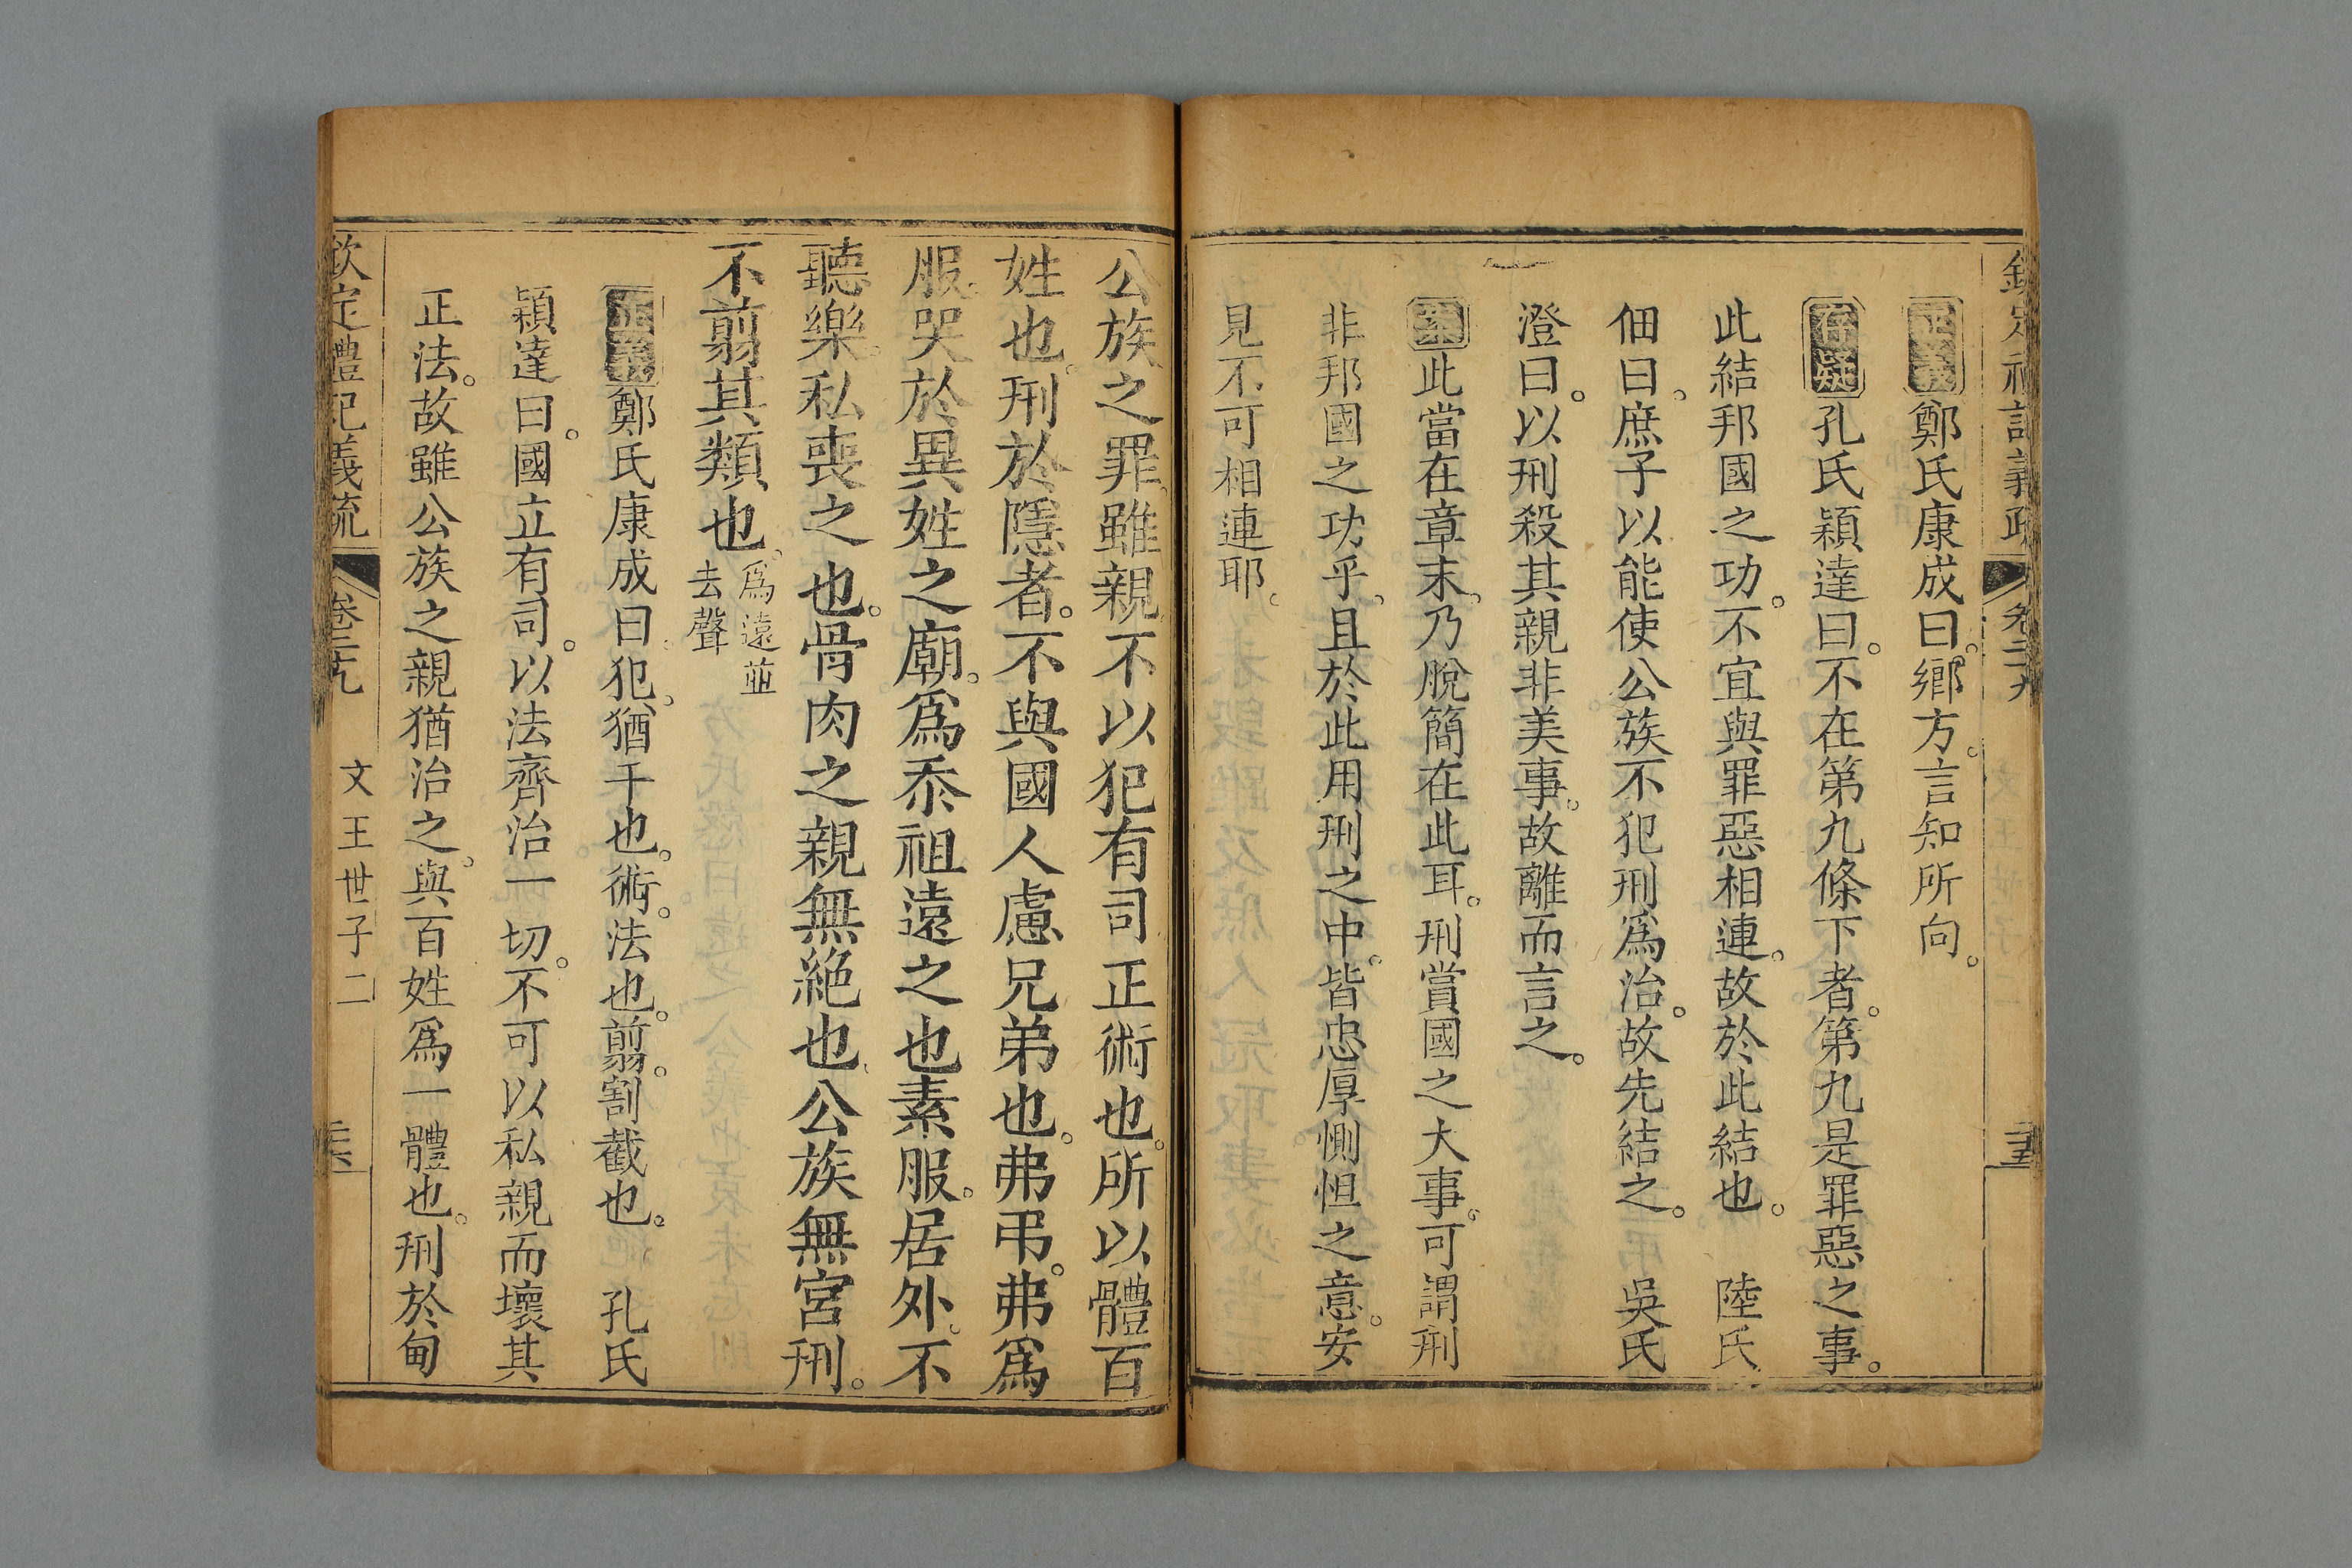 欽定禮記義疏 卷二十九 文王世子二
正義鄭氏康成曰鄉方言知所向
存疑孔氏穎達曰不在第九條下者第九是罪惡之事
此結邦國之功不宜與罪惡相連故於此結也 陸氏
佃曰庶子以能使公族不犯刑爲治故先結之 吳氏
澄曰以刑殺其親非美事故離而言之
案此當在章末乃脫簡在此耳刑賞國之大事可謂刑
非邦國之功乎且於此用刑之中皆忠厚惻怛之意安
見不可相連耶
公族之罪雖親不以犯有司正術也所以體百
姓也刑於隱者不與國人慮兄弟也弗弔弗爲
服哭於異姓之廟爲忝祖遠之也素服居外不
聽樂私喪之也骨肉之親無絕也公族無宮刑
不翦其類也爲遠並去聲
正義鄭氏康成曰犯猶干也術法也翦割截也 孔氏
穎達曰國立有司以法齊治一切不可以私親而壞其
正法故雖公族之親猶治之與百姓爲一體也刑於甸
欽定禮記義疏 卷二十九 文王世子二